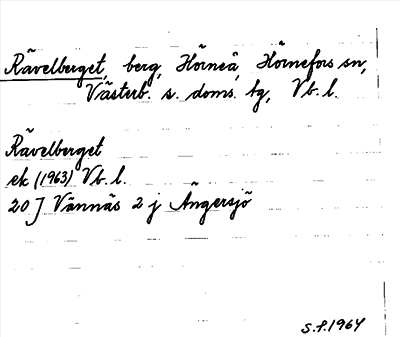 Rävelberget, berg, Hörneå, Hörnefors sn,
Västerb. s. doms. tg, Vb. l.
Rävelberget
ek (1963) Vb. l.
20 J Vännäs 2 j Ängersjö
S.F. 1964